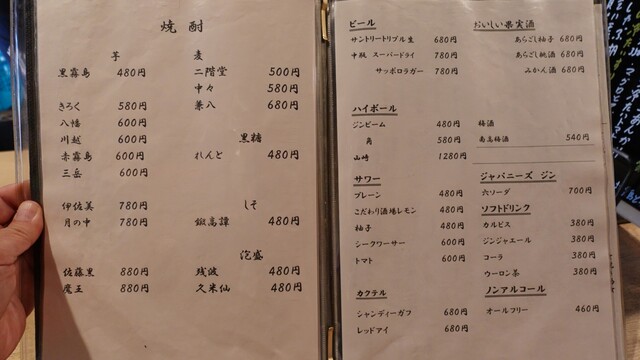 焼酎
芋
黒霧島 480円
きろく 580円
八幡 600円
川越 600円
赤霧島 600円
三岳 600円
伊佐美 780円
月の中 780円
佐藤黒 880円
魔王 880円
麦
二階堂 500円
中々 580円
兼八 680円
黒糖
れんと 480円
しそ
鍛高譚 480円
泡盛
残波 480円
久米仙 480円
ビール
サントリートリプル生 680円
中瓶 スーパードライ 780円
サッポロラガー 780円
ハイボール
ジンビーム 480円
角 580円
山崎 1280円
サワー
プレーン 480円
こだわり酒場レモン 480円
柚子 480円
シークワーサー 600円
トマト 600円
カクテル
シャンディーガフ 680円
レッドアイ 680円
おいしい果実酒
あらごし柚子 680円
あらごし桃酒 680円
みかん酒 680円
梅酒
南高梅酒 540円
ジャパニーズ ジン
六ソーダ 700円
ソフトドリンク
カルピス 380円
ジンジャエール 380円
コーラ 380円
ウーロン茶 380円
ノンアルコール
オールフリー 460円